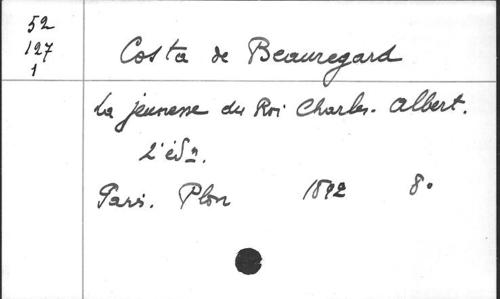 52
127
1
Costa de Beauregard
La jeunesse du Roi Charles-Albert.
2' édn.
Paris. Plon 1892 8°